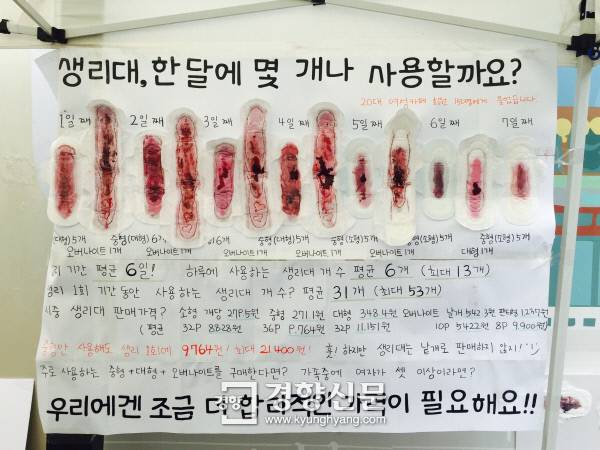 생리대, 한달에 몇 개나 사용할까요?
20대 여성
1일 째 2일 째 3일 째 4일 째 5일 째 6일 째 7일 째
(대형) 5개 중형(대형) 6개 6개 중형(대형) 5개 중형(소형) 5개 중형(소형) 5개 중형(소형) 5개
오버나이트 1개 오버나이트 1개 오버나이트 1개 오버나이트 1개 대형 1개
기간 평균 6일! 하루에 사용하는 생리대 개수 평균 6개 (최대 13개)
생리 1회 기간동안 사용하는 생리대 개 수? 평균 31개 (최대 53개)
시중 생리대 판매가격? 소형 개당 중형 271.1원 대형 348.4원 오버나이트 날개 542.3원
(평균 32P 8828원 36P 9,764원 32P 11,151원 10P 5422원 8P 9,900원)
중형만 사용해도 생리 1회에 9764원! 최대 21400원! 훗! 하지만 생리대는 낱개로 판매하지 않지!
주로 사용하는 중형+대형+오버나이트를 구매한다면? 가족중에 여자가 셋 이상이라면?
우리에겐 조금 더 합리적인 가격이 필요해요!!
경향신문
www.kyunghyang.com